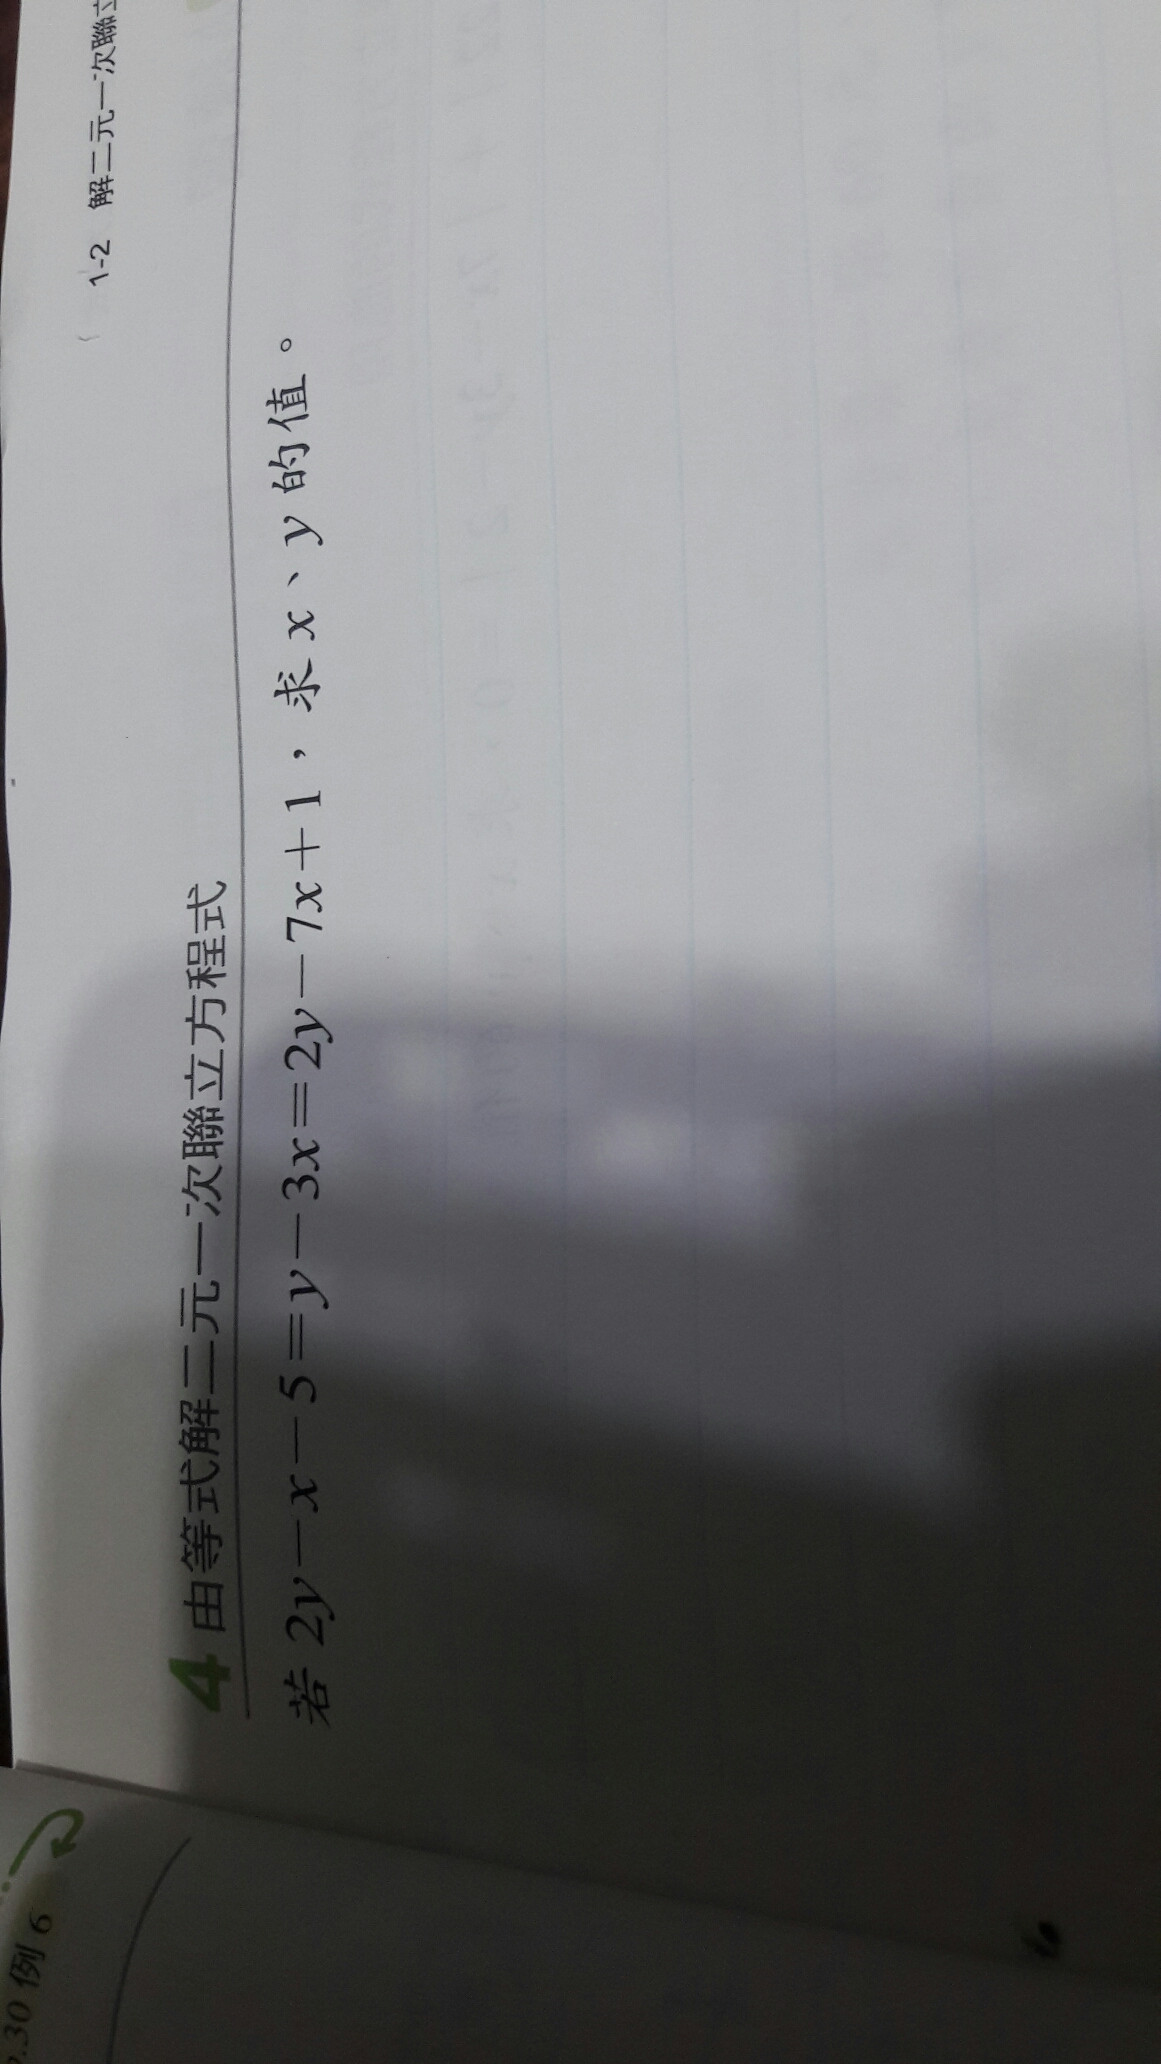 1-2 解二元一次聯立
4 由等式解二元一次聯立方程式
若 2y－x－5＝y－3x＝2y－7x＋1，求 x、y 的值。
.30 例 6